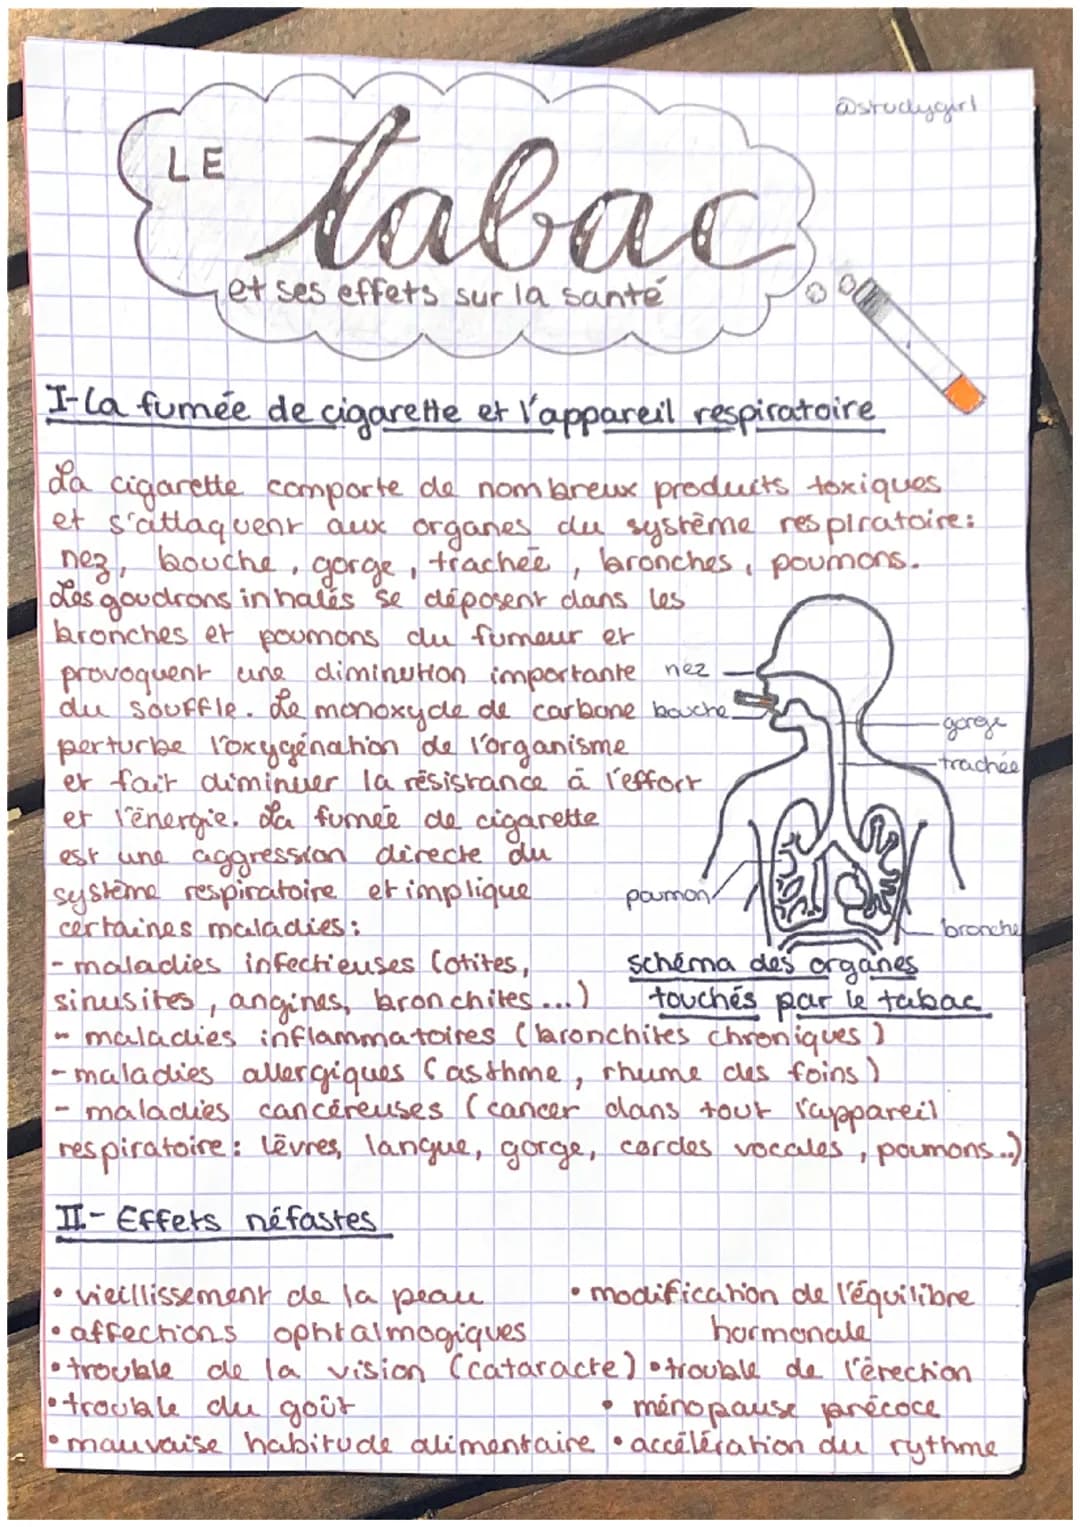 @studygirl
LE tabac
et ses effets sur la santé
I-La fumée de cigarette et l'appareil respiratoire
La cigarette comporte de nombreux produits toxiques
et s'attaquent aux organes du système respiratoire:
nez, bouche, gorge, trachée, bronches, poumons.
Les goudrons inhalés se déposent dans les
bronches et poumons du fumeur et
provoquent une diminution importante
du souffle. Le monoxyde de carbone
perturbe l'oxygénation de l'organisme
et fait diminuer la résistance à l'effort
et l'énergie. La fumée de cigarette
est une aggression directe du
système respiratoire et implique
certaines maladies:
- maladies infectieuses (otites,
sinusites, angines, bronchites...)
- maladies inflammatoires (bronchites chroniques)
- maladies allergiques (asthme, rhume des foins)
- maladies cancéreuses (cancer dans tout l'appareil
respiratoire: lèvres, langue, gorge, cordes vocales, poumons..)
nez
bouche
gorge
trachée
poumon
bronche
schéma des organes
touchés par le tabac
II.- Effets néfastes
• vieillissement de la peau
• affections ophtalmogiques
• trouble de la vision (cataracte)
• trouble du goût
• mauvaise habitude alimentaire
• modification de l'équilibre
hormonale
• trouble de l'érection
• ménopause précoce
• accélération du rythme